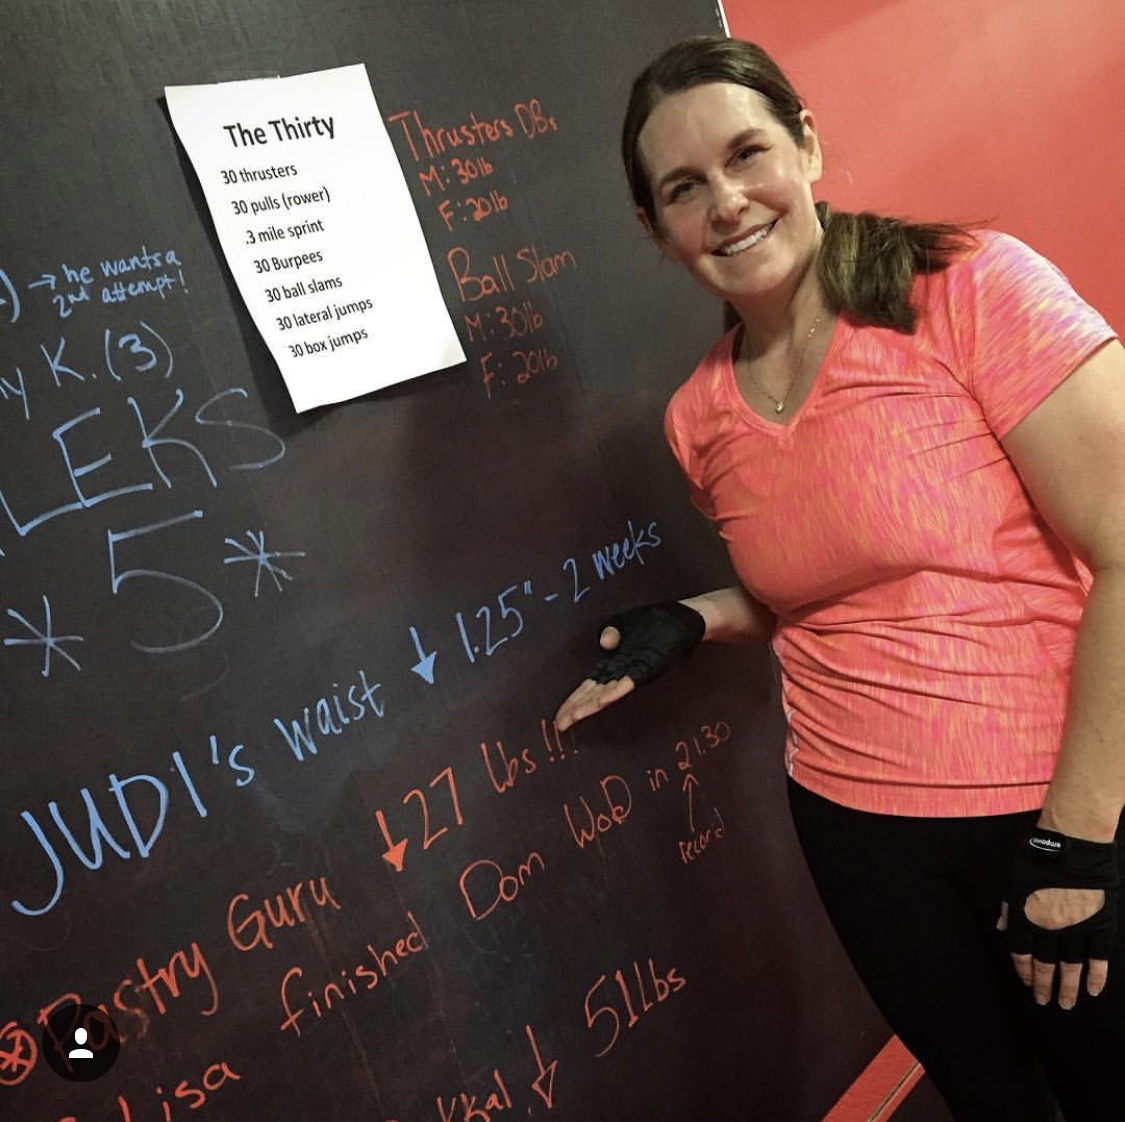 The Thirty
30 thrusters
30 pulls (rower)
.3 mile sprint
30 Burpees
30 ball slams
30 lateral jumps
30 box jumps
Thrusters DBs
M: 30lb
F: 20lb
Ball Slam
M: 30lb
F: 20lb
) → he wants a
2nd attempt!
y K. (3)
LEKS
* 5 *
JUDI's waist ↓ 1.25" - 2 weeks
Pastry Guru ↓ 27 lbs!!!
Lisa finished Dom WoD in 21:30
↑
record
↓ 51lbs